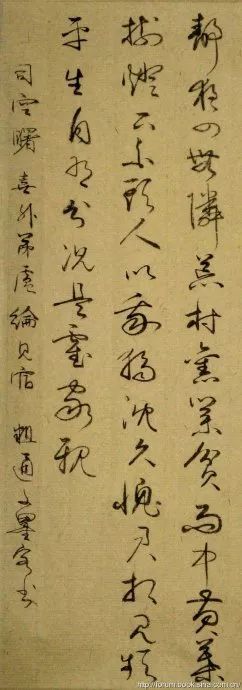 靜夜四無隣荒村舊業貧雨中黃葉
樹燈下白頭人以我獨沈久愧君相見頻
平生自有分況是霍家親
司空曙 喜外弟盧綸見宿 粗通文墨客书
http://forum.book.sina.com.cn/